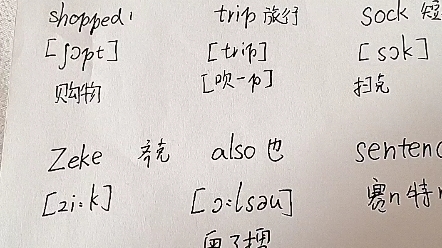 shopped trip 旅行 sock 短
[ʃɔpt] [trip] [sɔk]
购物 [吹一p] 扫克
Zeke 齐克 also 也 sentenc
[zi:k] [ɔ:lsəu] 赛n特n